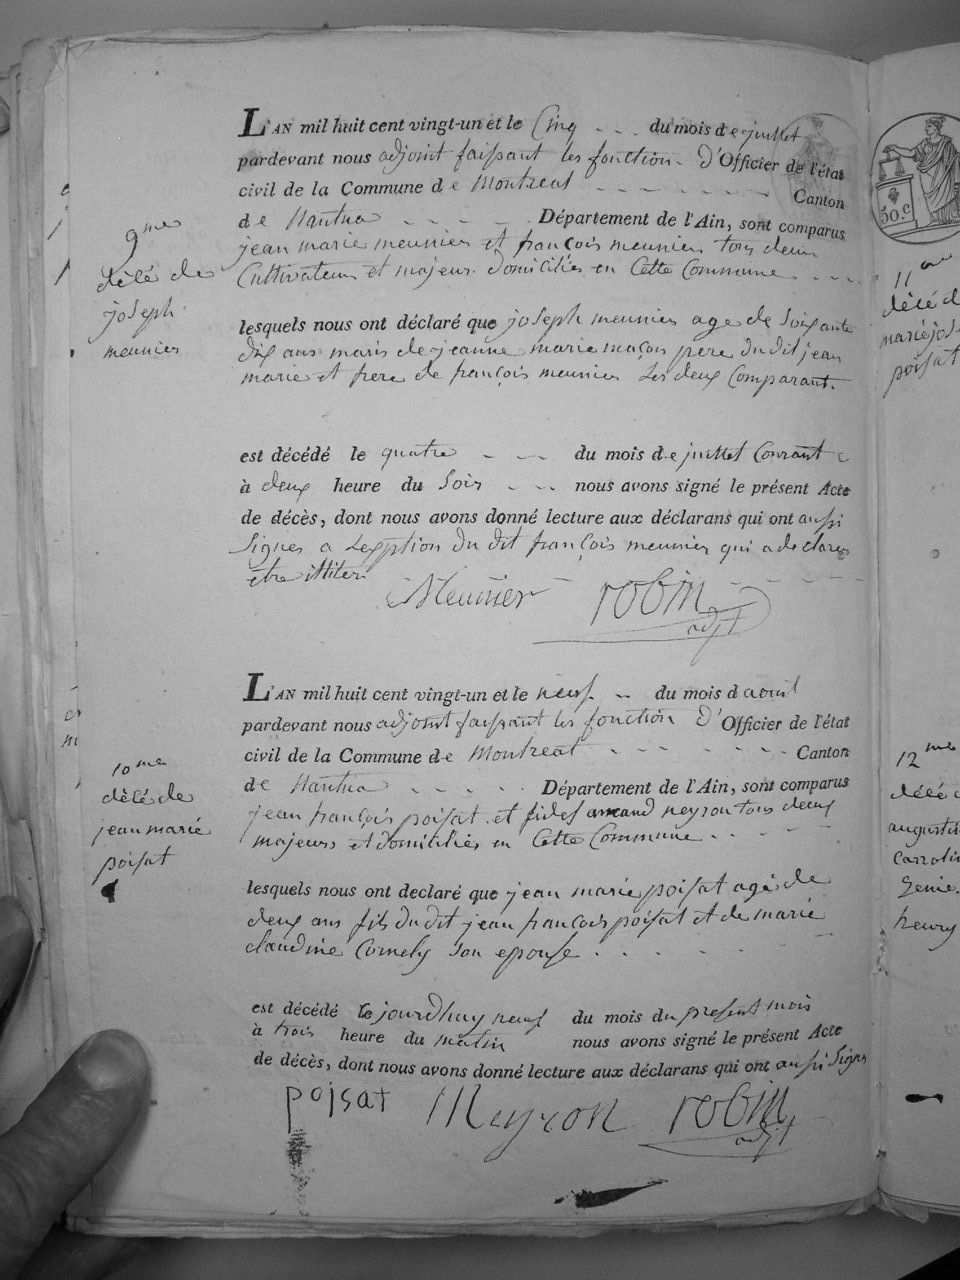 9me
décé de
joseph
meunier
L'AN mil huit cent vingt-un et le Cinq du mois de juillet
pardevant nous adjoint faissant les fonction d'Officier de l'état
civil de la Commune de Montreal Canton
de Nantua Département de l'Ain, sont comparus
jean marie meunier et françois meunier tous deux
Cultivateurs et majeurs domiciliés en Cette Commune
lesquels nous ont déclaré que joseph meunier age de Soixante
dix ans maris de jeanne marie maçon pere du dit jean
marie et frere de françois meunier Les deux Comparant.
est décédé le quatre du mois de juillet Courant
à deux heure du Soir nous avons signé le présent Acte
de décès, dont nous avons donné lecture aux déclarans qui ont aussi
Signes a du dit françois meunier qui a declarer
être
Meunier robin
adjt
10me
décé de
jean marie
poisat
L'AN mil huit cent vingt-un et le neuf du mois d aouil
pardevant nous adjoint faissant les fonction d'Officier de l'état
civil de la Commune de Montreal Canton
de Nantua Département de l'Ain, sont comparus
jean françois poisat et neyron tous deux
majeurs et domiciliés en Cette Commune
lesquels nous ont declaré que jean marie poisat agé de
deux ans fils du dit jean françois poisat et de marie
claudine Cornely son epouse
est décédé le jourdhuy neuf du mois du present mois
à trois heure du matin nous avons signé le présent Acte
de décès, dont nous avons donné lecture aux déclarans qui ont aussi Signes
poisat Neyron robin
adjt
50.c
11me
décé d
marie jos
poisat
12me
décé d
augustin
Carrolin
henry